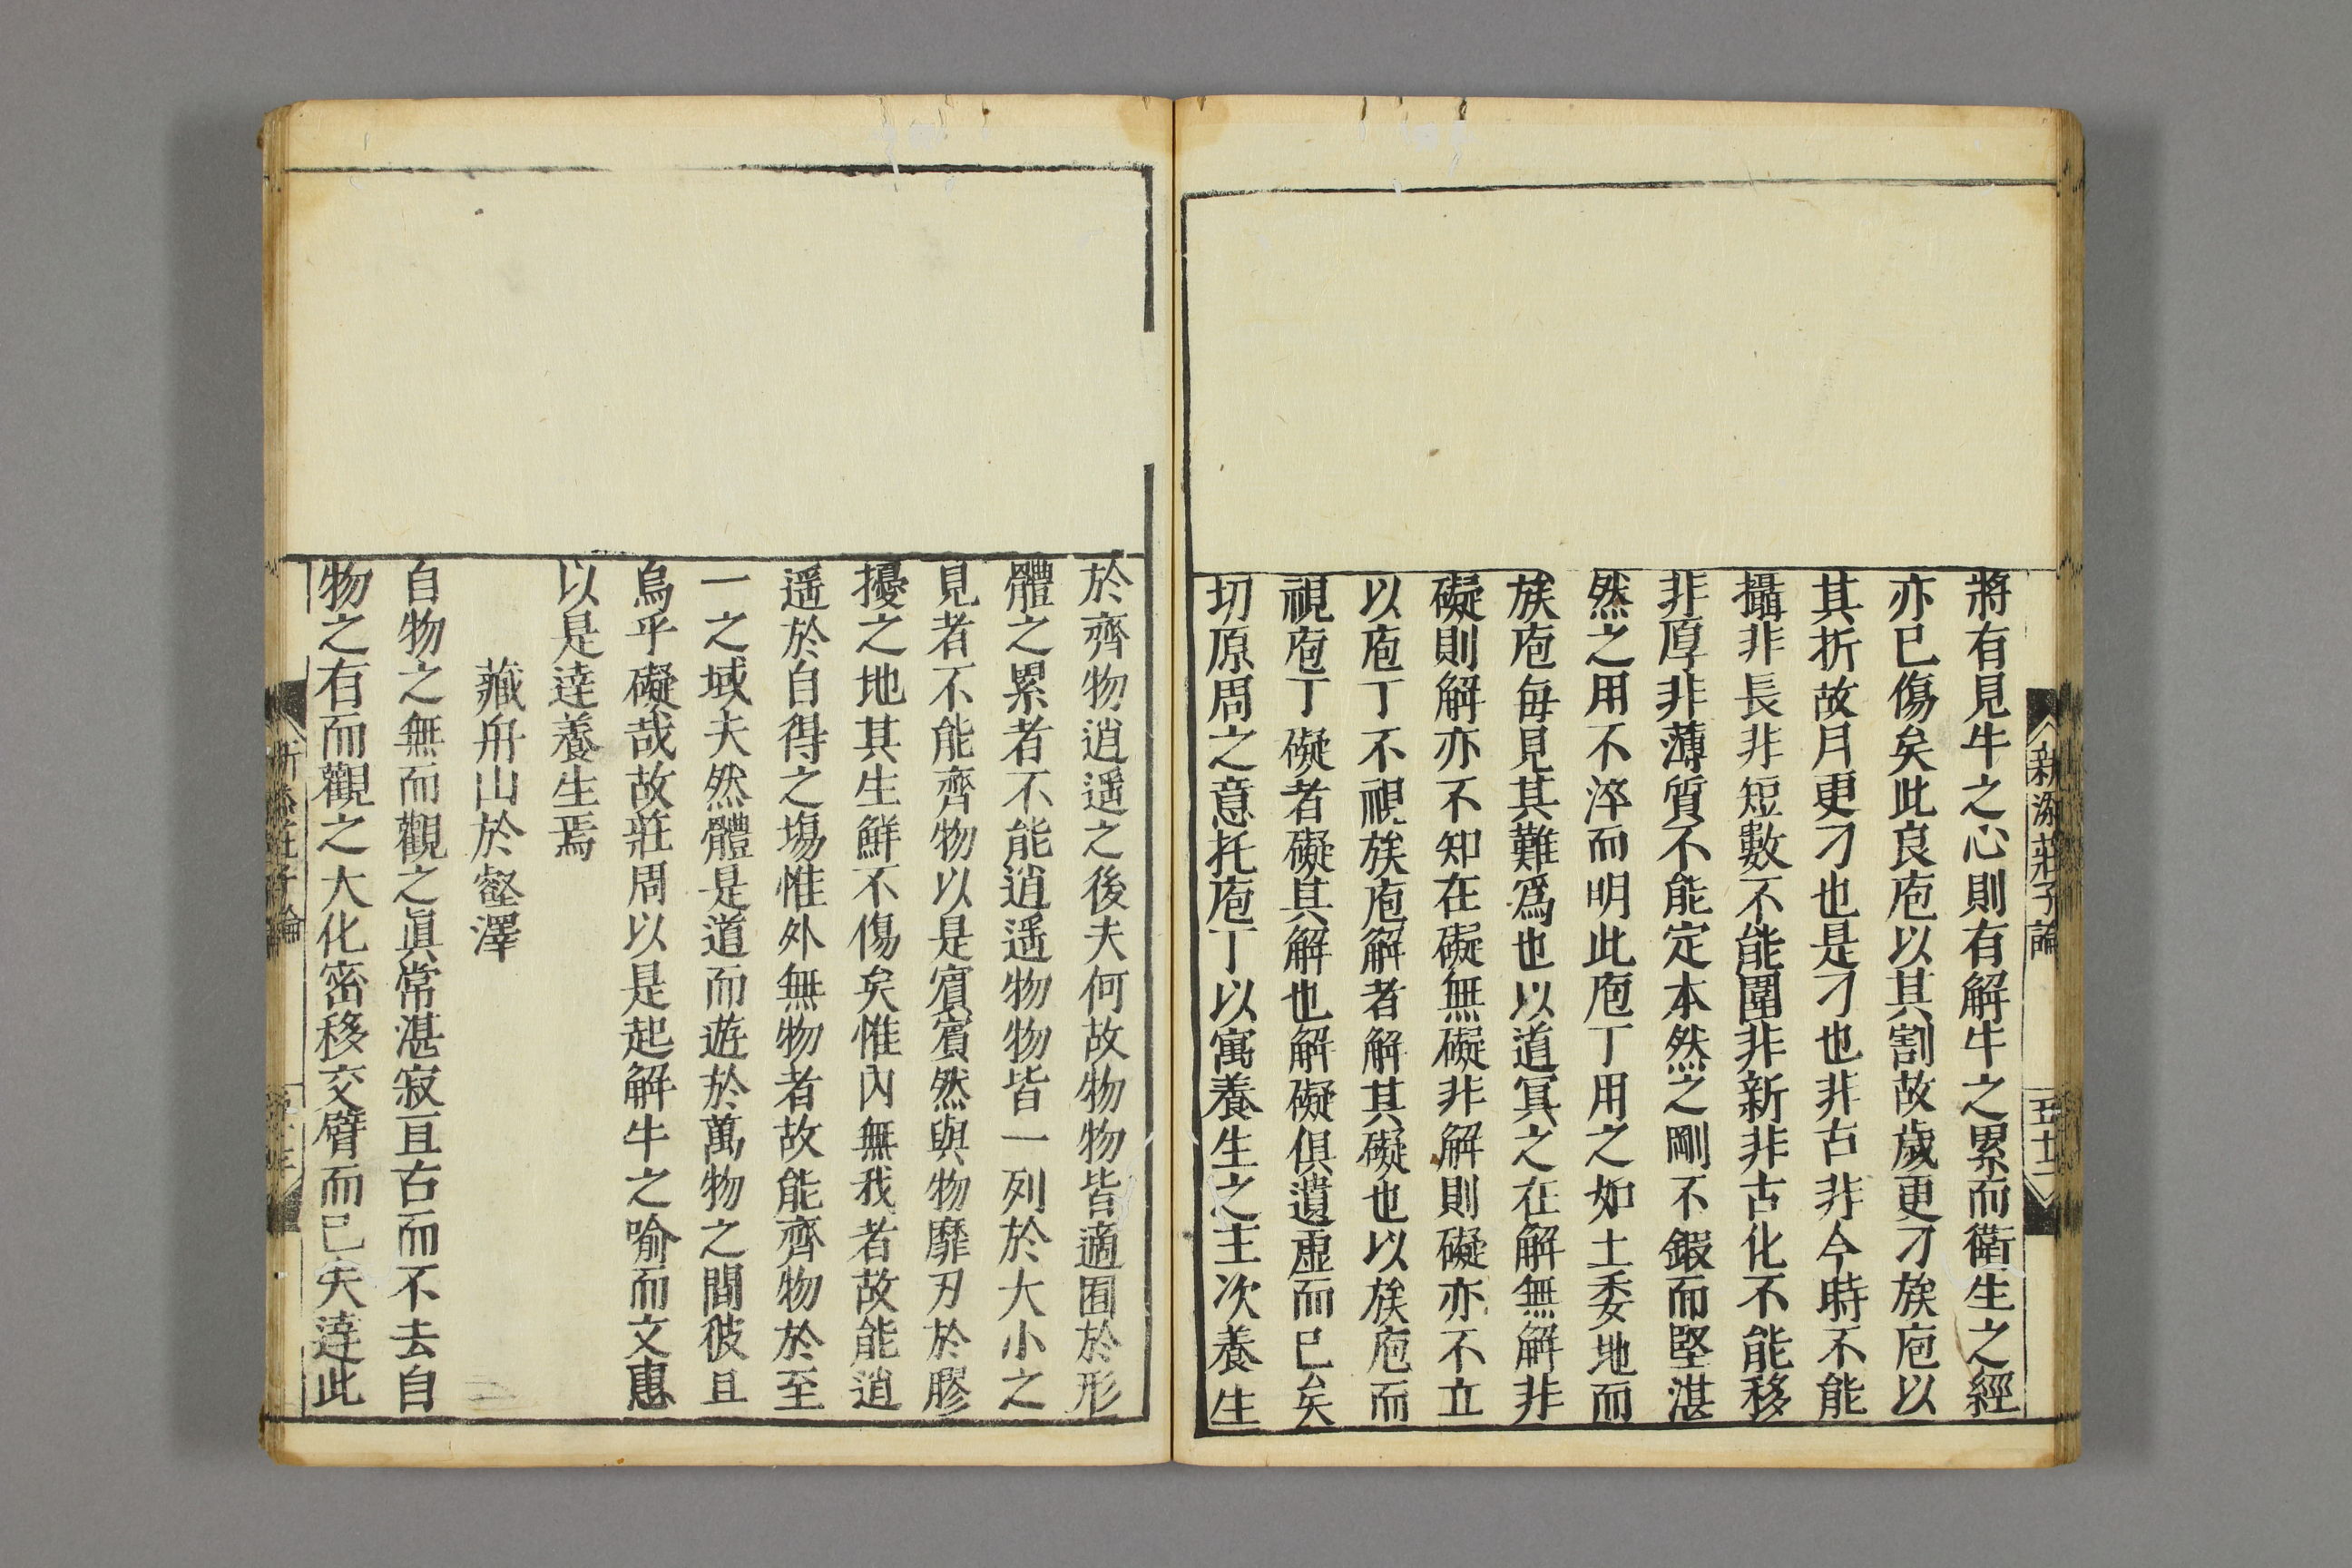 新添莊子論
五廿二
將有見牛之心則有解牛之累而衛生之經
亦已傷矣此良庖以其割故歲更刀族庖以
其折故月更刀也是刀也非古非今時不能
攝非長非短數不能圍非新非古化不能移
非厚非薄質不能定本然之剛不鍜而堅湛
然之用不淬而明此庖丁用之如土委地而
族庖每見其難爲也以道冥之在解無解非
礙則解亦不知在礙無礙非解則礙亦不立
以庖丁不視族庖解者解其礙也以族庖而
視庖丁礙者礙其解也解礙俱遺虛而已矣
切原周之意托庖丁以寓養生之主次養生
於齊物逍遥之後夫何故物物皆適囿於形
體之累者不能逍遥物物皆一列於大小之
見者不能齊物以是賓賓然與物靡刃於膠
擾之地其生鮮不傷矣惟內無我者故能逍
遥於自得之塲惟外無物者故能齊物於至
一之域夫然體是道而遊於萬物之間彼且
烏乎礙哉故莊周以是起解牛之喻而文惠
以是達養生焉
藏舟山於壑澤
自物之無而觀之眞常湛寂亘古而不去自
物之有而觀之大化密移交臂而已失達此
莊子論